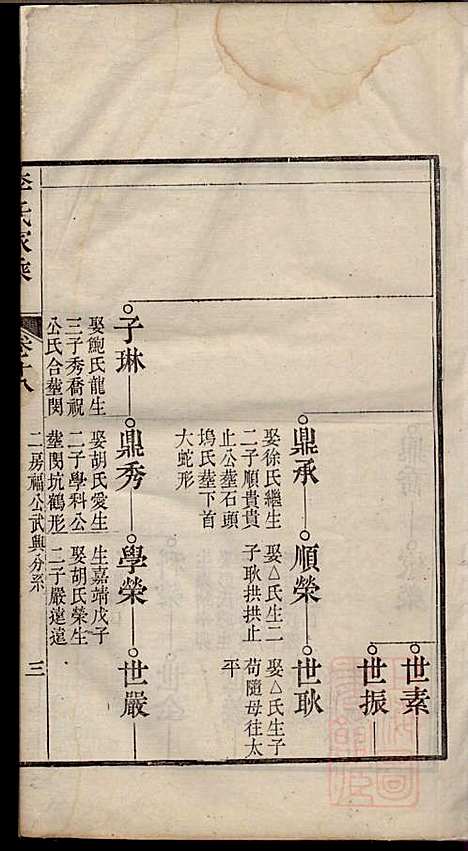 世素
世振
鼎承
娶徐氏繼生
二子順貴貴
止公塟石頭
塢氏塟下首
大蛇形
順榮
娶△氏生二
子耿拱拱止
世耿
娶△氏生子
苟隨母往太
平
子琳
娶鮑氏龍生
三子秀喬祝
公氏合塟閔
鼎秀
娶胡氏愛生
二子學科公
塟閔坑鶴形
學榮
生嘉靖戊子
娶胡氏榮生
二子嚴遠遠
世嚴
李氏家乘
卷十八
二房福公武興分系
三